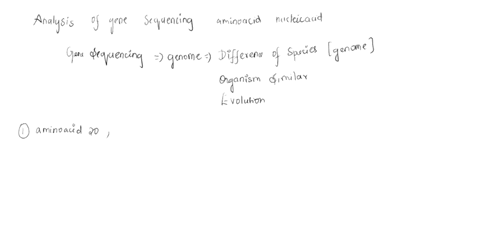 Analysis of gene Sequencing aminoacid nucleicacid
Gene Sequencing => genome => Difference of Species [genome]
Organism Similar
Evolution
① aminoacid 20,